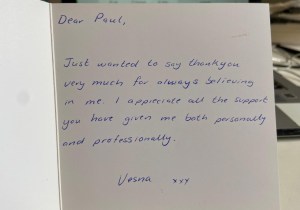 Dear Paul,
Just wanted to say thankyou
very much for always believing
in me. I appreciate all the support
you have given me both personally
and professionally.
Vesna xxx